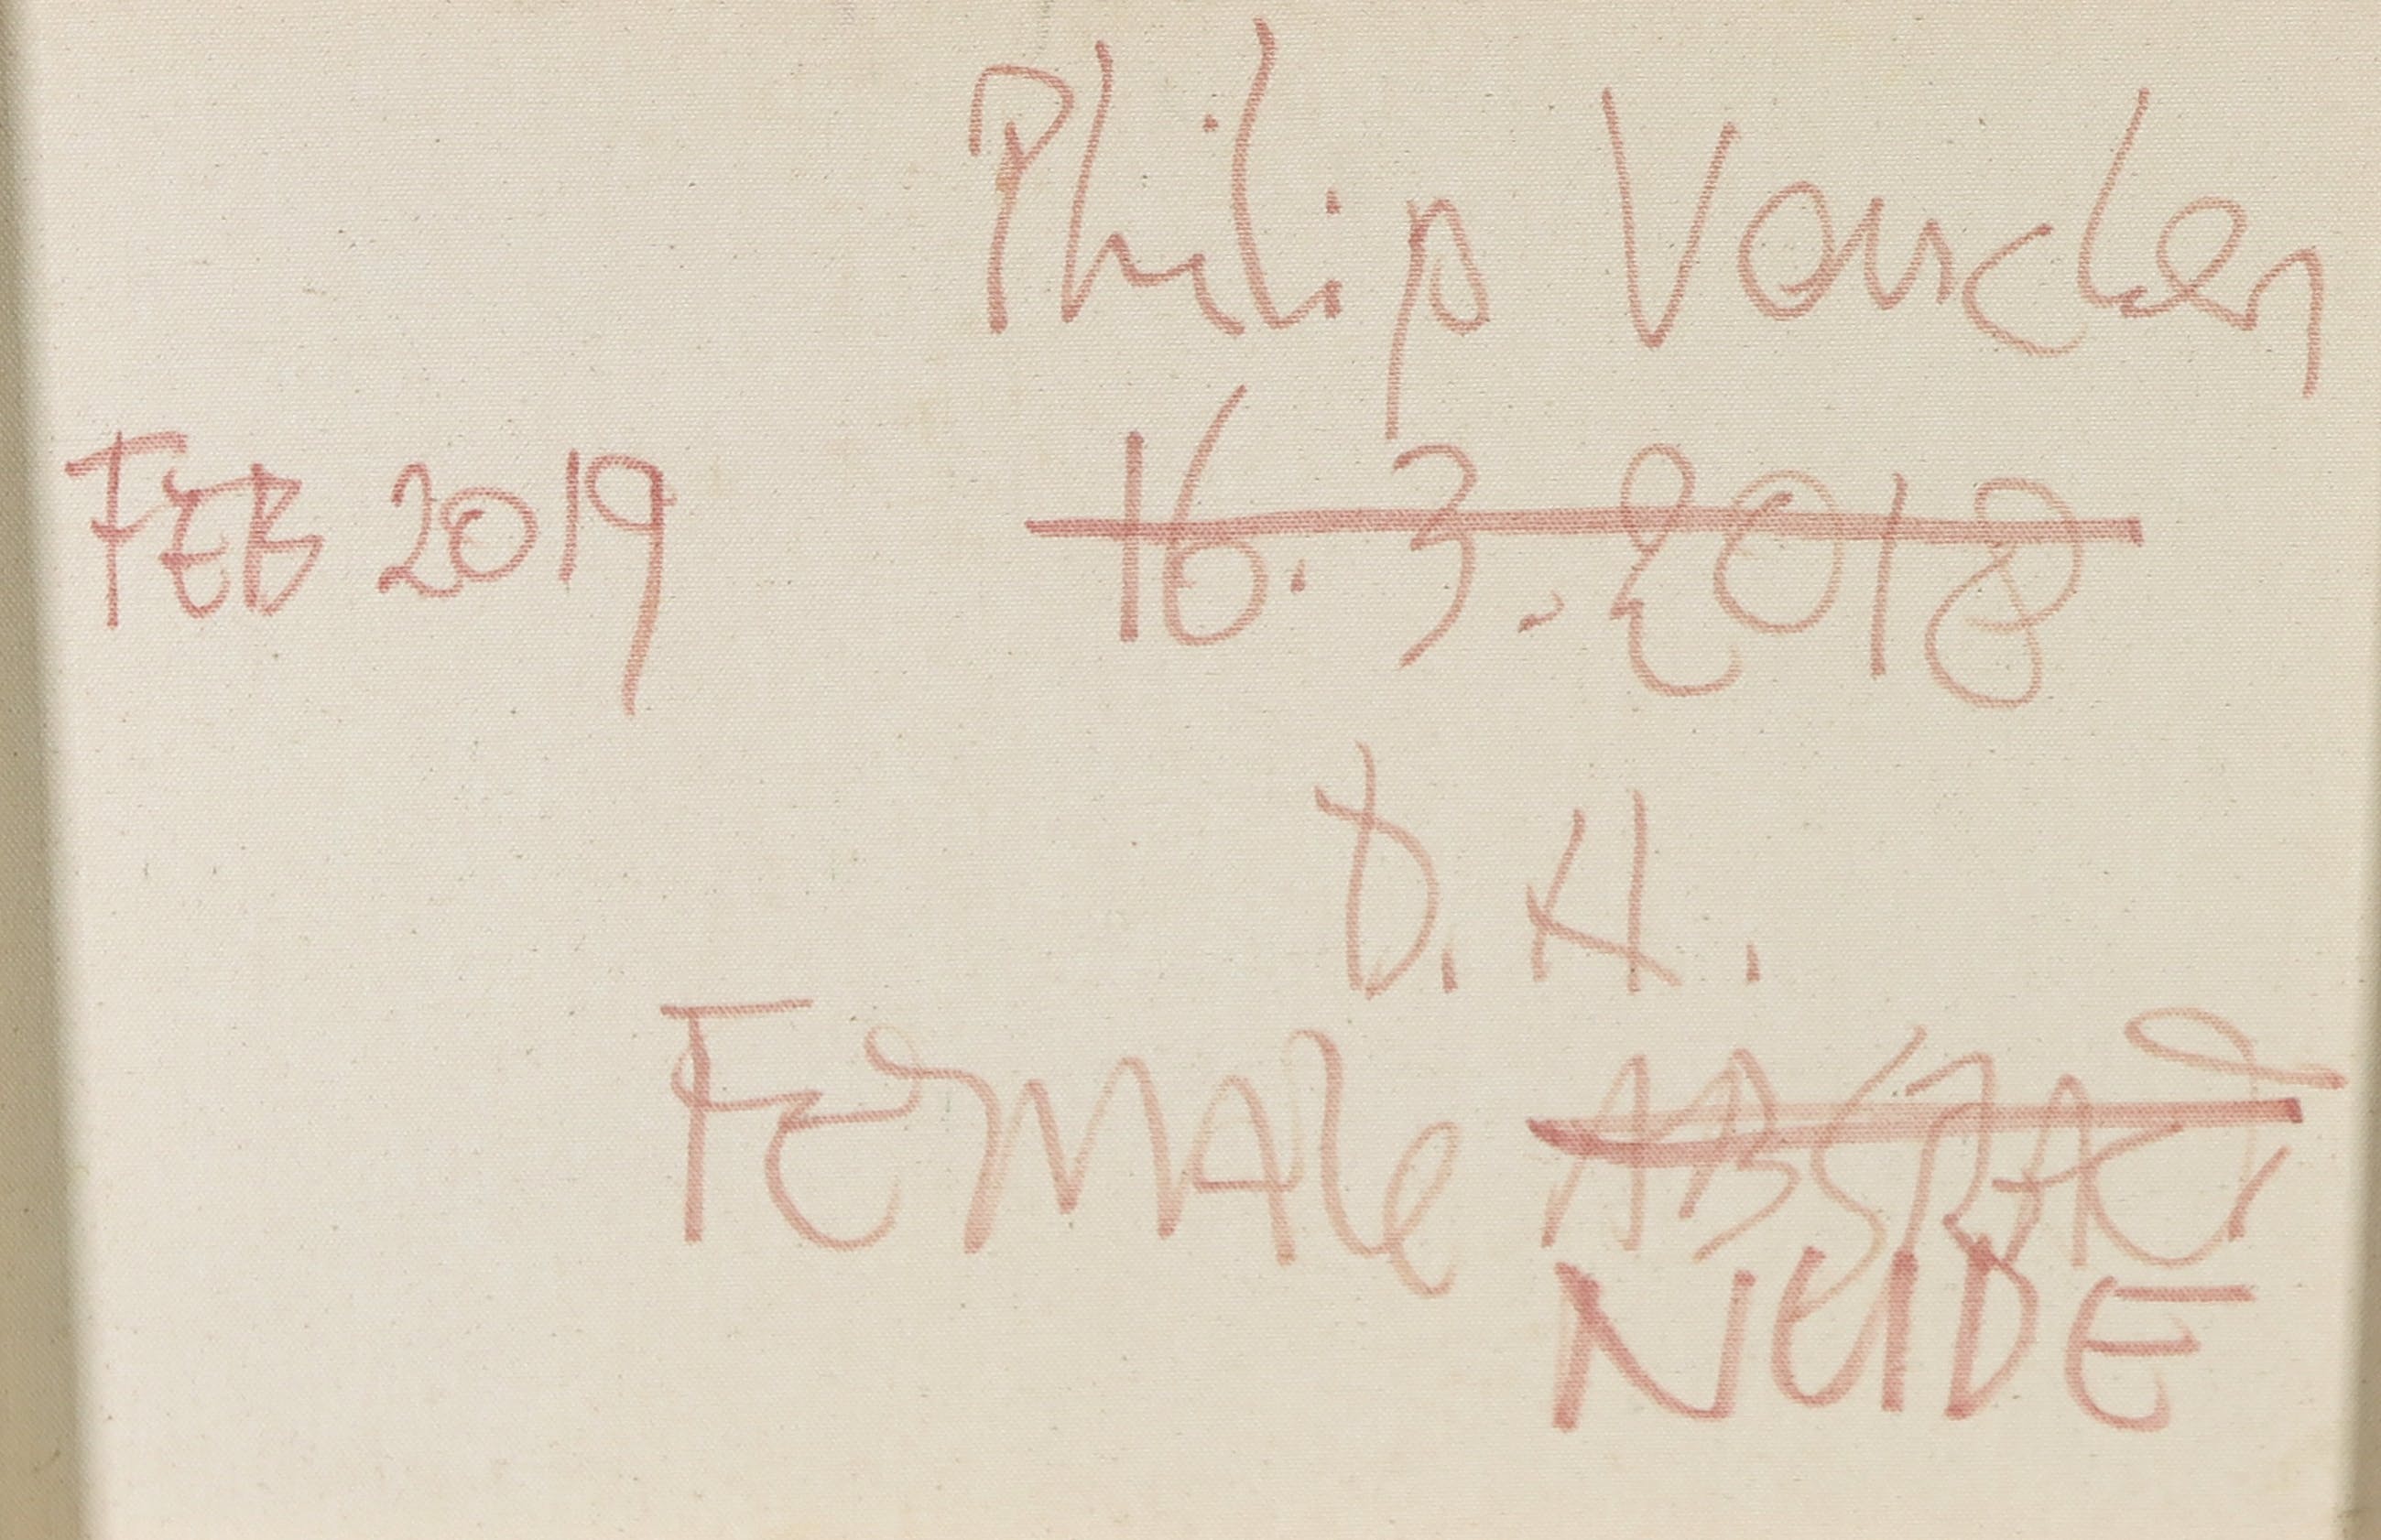 Philip
FEB 2019 16.3.2018
D.H.
FEMALe ABSTRACT
NUDE